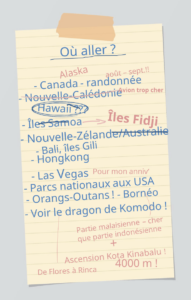 Où aller ?
Alaska
août - sept.!!
- Canada - randonnée
- Nouvelle-Calédonie
avion trop cher
- Hawaii ???
- Îles Samoa
Îles Fidji
- Nouvelle-Zélande/Australie
- Bali, îles Gili
- Hongkong
- Las Vegas
Pour mon anniv'
- Parcs nationaux aux USA
- Orangs-Outans ! - Bornéo
- Voir le dragon de Komodo !
Partie malaisienne - cher
que partie indonésienne
+
Ascension Kota Kinabalu !
4000 m !
De Flores à Rinca